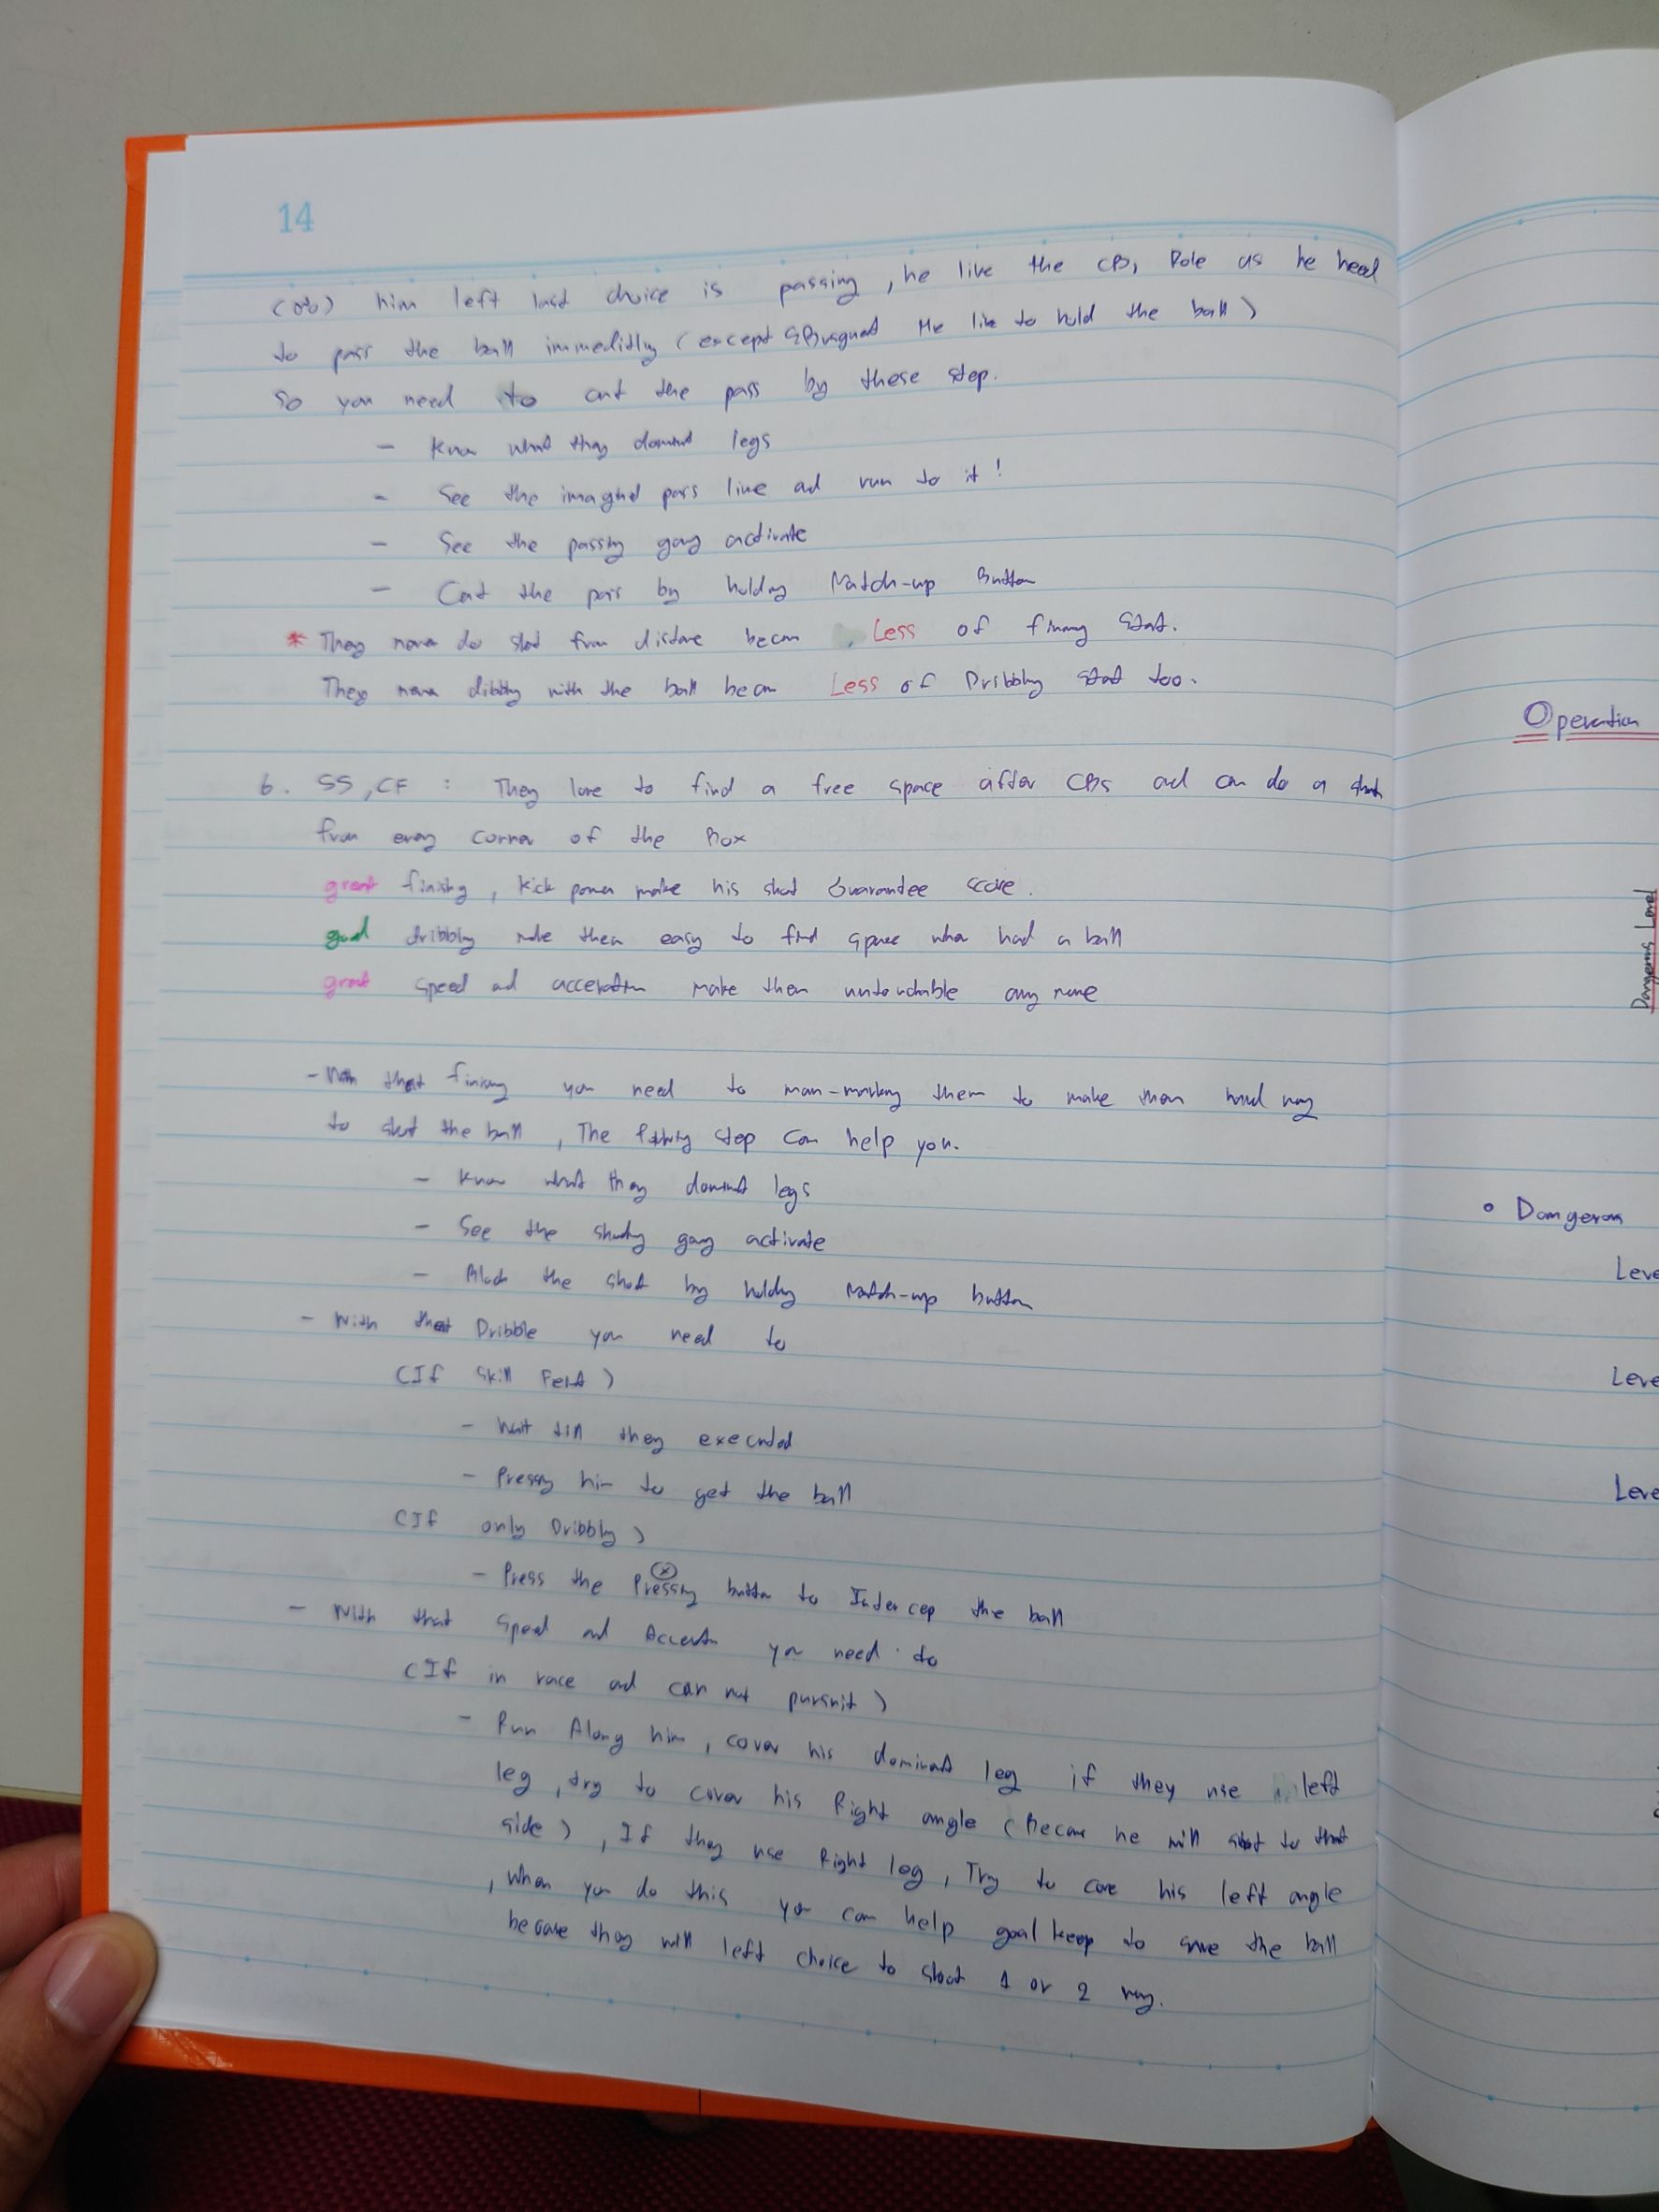 14
him left last choice is passing , he like the CB, Role as he need
to pass the ball immeditly (except He like to hold the ball)
So you need to cut the pass by these step.
- Know what they domint legs
- See the imagnd pass line ad run to it !
- See the passing gay activate
- Cut the pass by holdng Match-up Button
* They never do shot from distane becau Less of fining Stat.
They never dibbly with the ball becau Less of Dribbly stat too.
6. SS ,CF : They love to find a free space after CBs ad can do a shot
from evey corner of the Box
great finishg , kick power make his shot Guarantee score .
good dribbly make them easy to find space when had a ball
great speed ad acceleratn make them untouchable any more
- With that finisng you need to man-markng them to make them hard way
to shot the ball , The step can help you.
- Know what they domint legs
- See the gay activate
- Block the shot by holdng Match-up button
- With that Dribble you need to
(If skill Feint)
- Wait till they executed
- Pressg him to get the ball
(If only Dribbly)
- Press the Pressing button to Intercep the ball
- With that Speed ad you need to
(If in race ad can not pursuit)
- Run Along him , cover his dominat leg if they use left
leg , try to cover his Right angle (Becaue he will shot to that
side) , If they use Right leg , Try to cove his left angle
, When you do this you can help goal keep to save the ball
becaue they will left choice to shoot 1 or 2 way.
Operation
Dangerous Level
• Dangerou
Leve
Leve
Leve